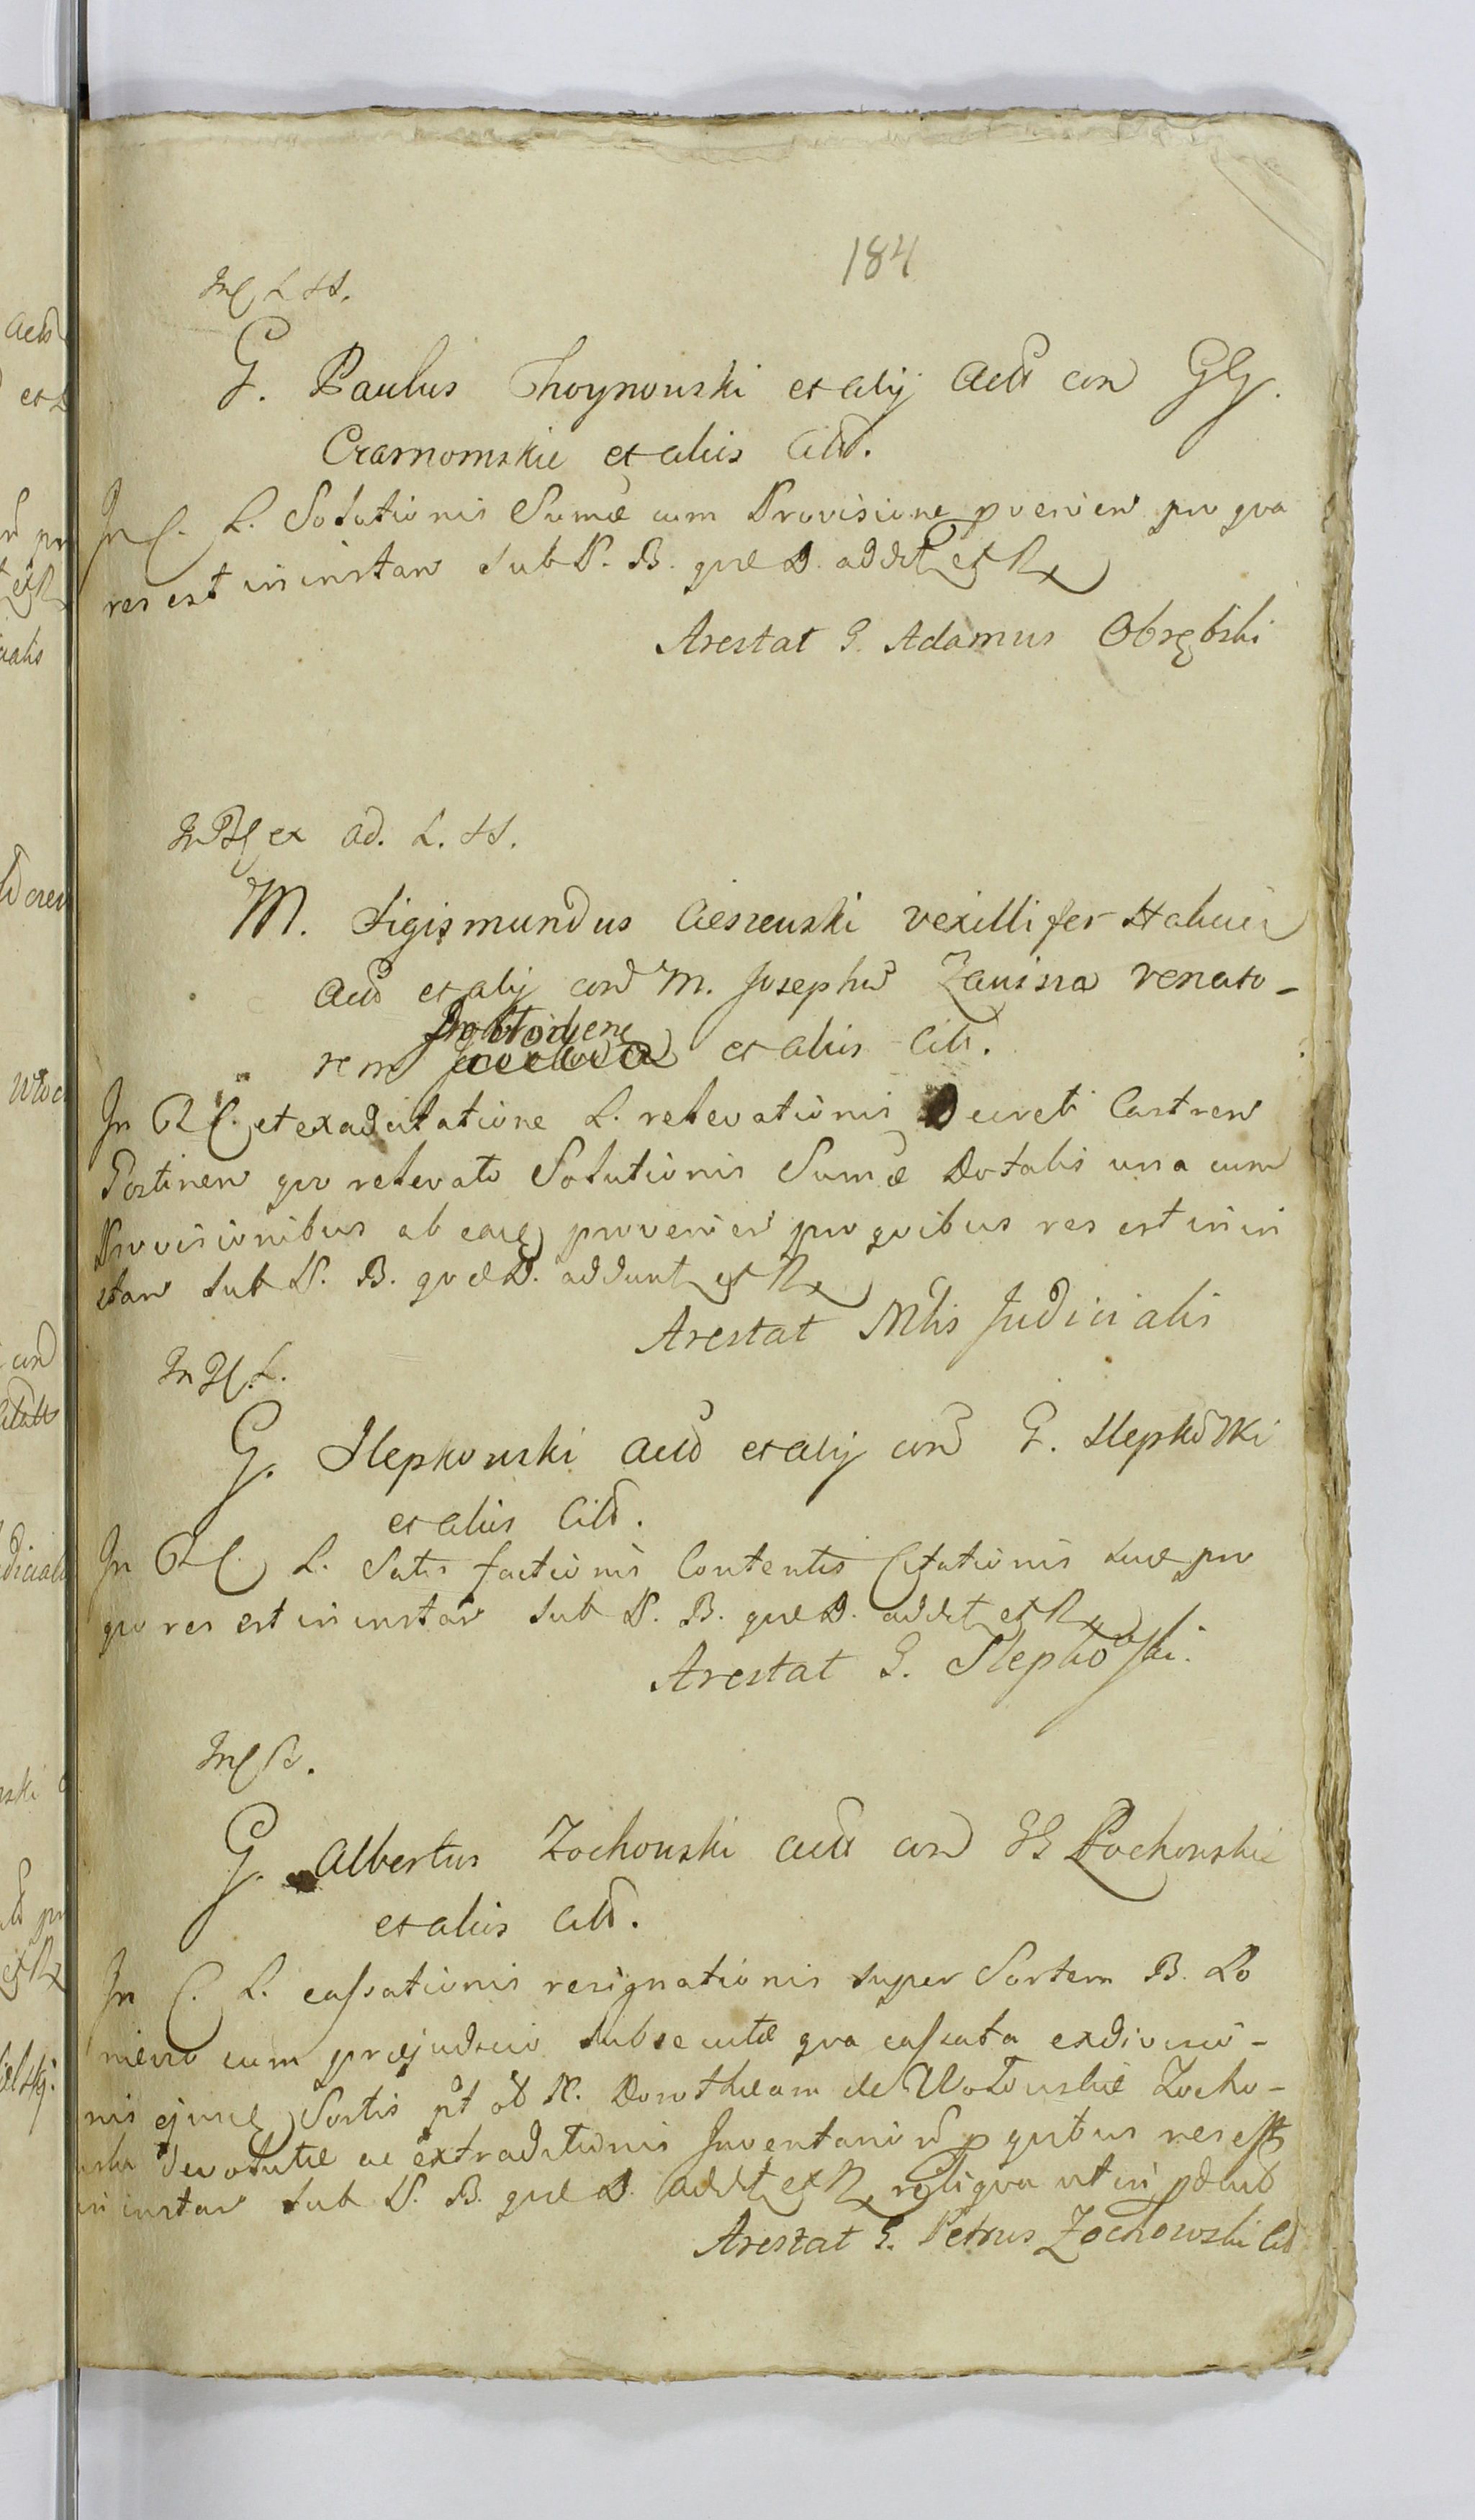 184
G. Paulus Choynowski et alij Actt con GG.
Czarnomskie et aliis Citt.
In C. L. Solutionis Sumæ cum Provisione pvenien pro qva
res est in instan sub P. B. quæ D. addet et R
Arestat G. Adamus Obrębski
ex ad. L. H.
M. Sigismundus Cieszewski Vexillifer Halicien
Act et alij con M. Josephu Zawisza Venato-
rem et aliis Cit.
In R C. et exadcitatione L. relevationis Decreti Castren
Pertinen qvo relevato Solutionis Sumæ Dotalis una cum
Provisionibus ab eaq provenien pro qvibus res est in in
stan sub P. B. qvæ D. addunt et R
Arestat Mtis Judicialis
G. Slepkowski Act et alij con G. Slepkowski
et aliis Citt.
In R C L. Satis factionis Contentis Citationis suæ pro
qvo res est in instan sub P. B. quæ D. addet et R
Arestat G. Slepkowski.
G. Albertus Zochowski Actt con GG Zochowskie
et aliis Citt.
In C. L. cassationis resignationis super Sortem B. Lo
mewo cum præjudicio subsecutæ qva cassata exdivisio-
nis ejusq Sortis pt ad N. Dorotheam de Wotowskie Zocho-
wska devolutæ ac extraditionis Inventarior p qvibus res est
in instan sub P. B. quæ D. addet et R reliqva ut in
Arestat G. Petrus Zochowski Cit